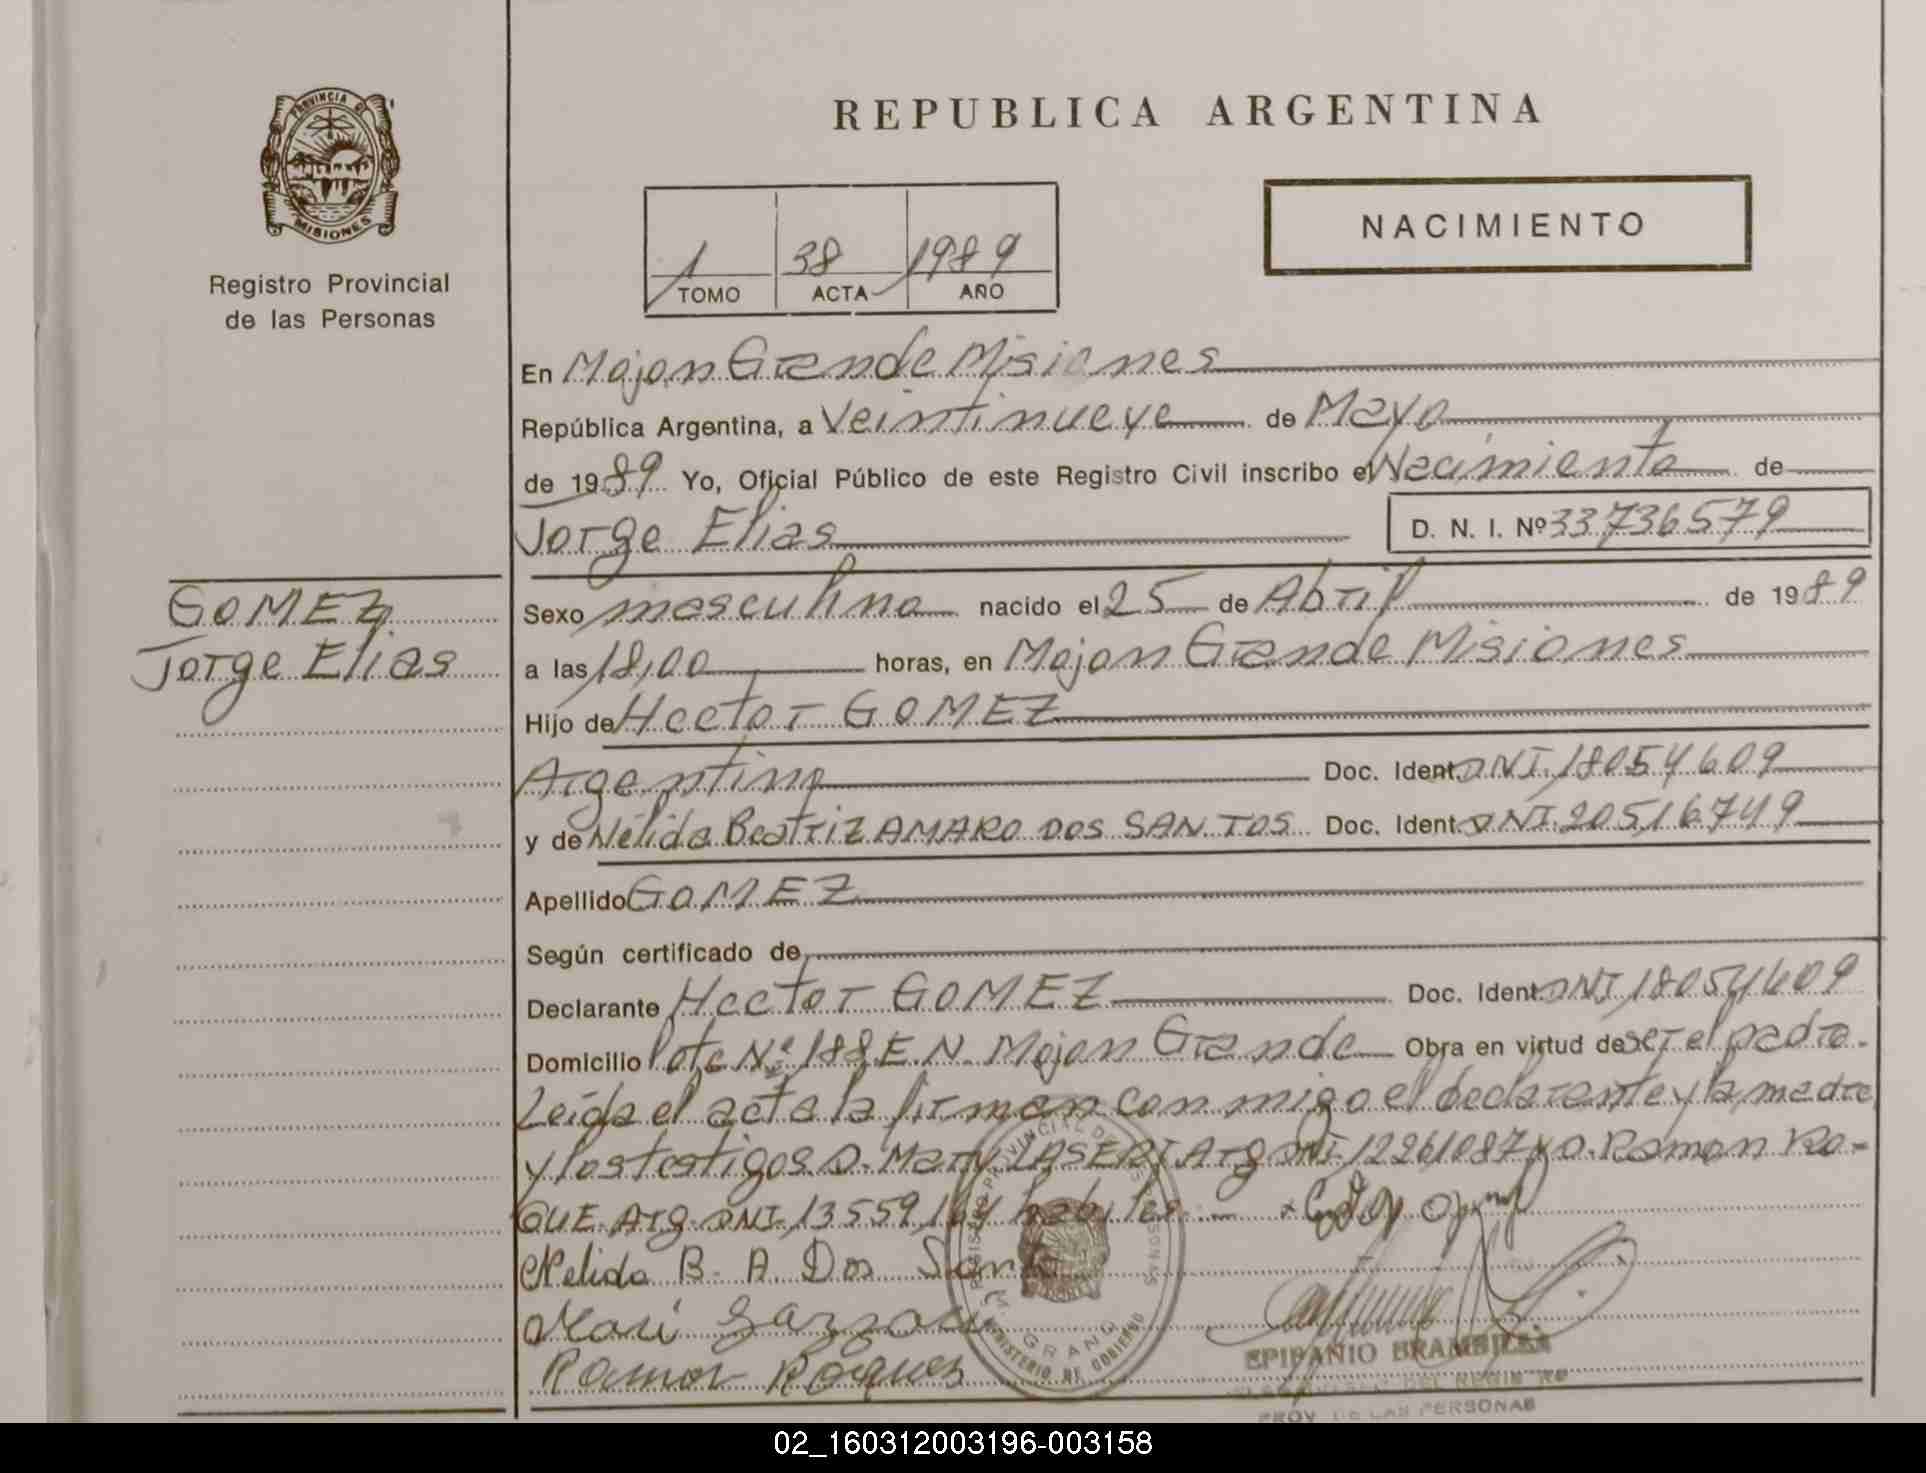 PROVINCIA DE
MISIONES
Registro Provincial
de las Personas
REPUBLICA ARGENTINA
NACIMIENTO
1 38 1989
TOMO ACTA AÑO
En Mojon Grande Misiones
República Argentina, a Veintinueve de Mayo
de 1989 Yo, Oficial Público de este Registro Civil inscribo el Nacimiento de
Jorge Elias D. N. I. Nº 33736579
GOMEZ
Jorge Elias
Sexo masculino nacido el 25 de Abril de 1989
a las 18,00 horas, en Mojon Grande Misiones
Hijo de Hector GOMEZ
Argentino Doc. Ident. DNI. 18054609
y de Nélida Beatriz AMARO DOS SANTOS Doc. Ident. DNI. 20516749
Apellido GOMEZ
Según certificado de
Declarante Hector GOMEZ Doc. Ident. DNI 18054609
Domicilio lote Nº 188 E.N. Mojon Grande Obra en virtud de ser el padre.
Leída el acta la firman conmigo el declarante y la madre
y los testigos D. Mary Arg DNI. 12261087 y D. Ramon Ro-
QUE Arg. DNI. 13559164 habiles
Nelida B. A. Dos Santo
Ramon Roques
REGISTRO PROVINCIAL DE LAS PERSONAS
MINISTERIO DE GOBIERNO
EPIFANIO BRAMBILLA
PROV. DE LAS PERSONAS
02_160312003196-003158